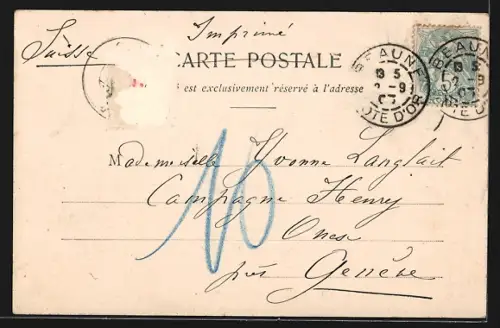 Imprimé
Suisse
CARTE POSTALE
est exclusivement réservé à l'adresse
BEAUNE
13 5
2 -9
07
CÔTE D'OR
BEAUNE
CÔTE D'OR
10
Mademoiselle Yvonne Langlait
Campagne Henry
Onex
près Genève